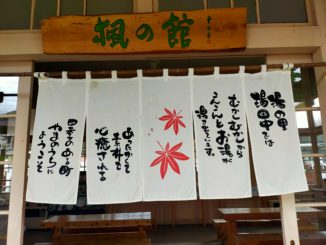 楓の館
湯の里
湯田中では
むかしむかしから
こんこんとお湯が
湧いています。
あったかくて
素朴な
心癒される
四季のある町
やまのうちに
ようこそ